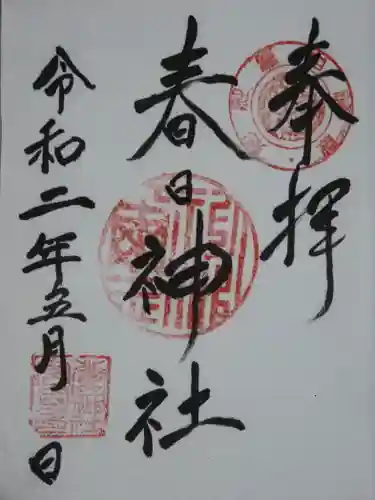 奉拝
春日神社
令和二年五月 日